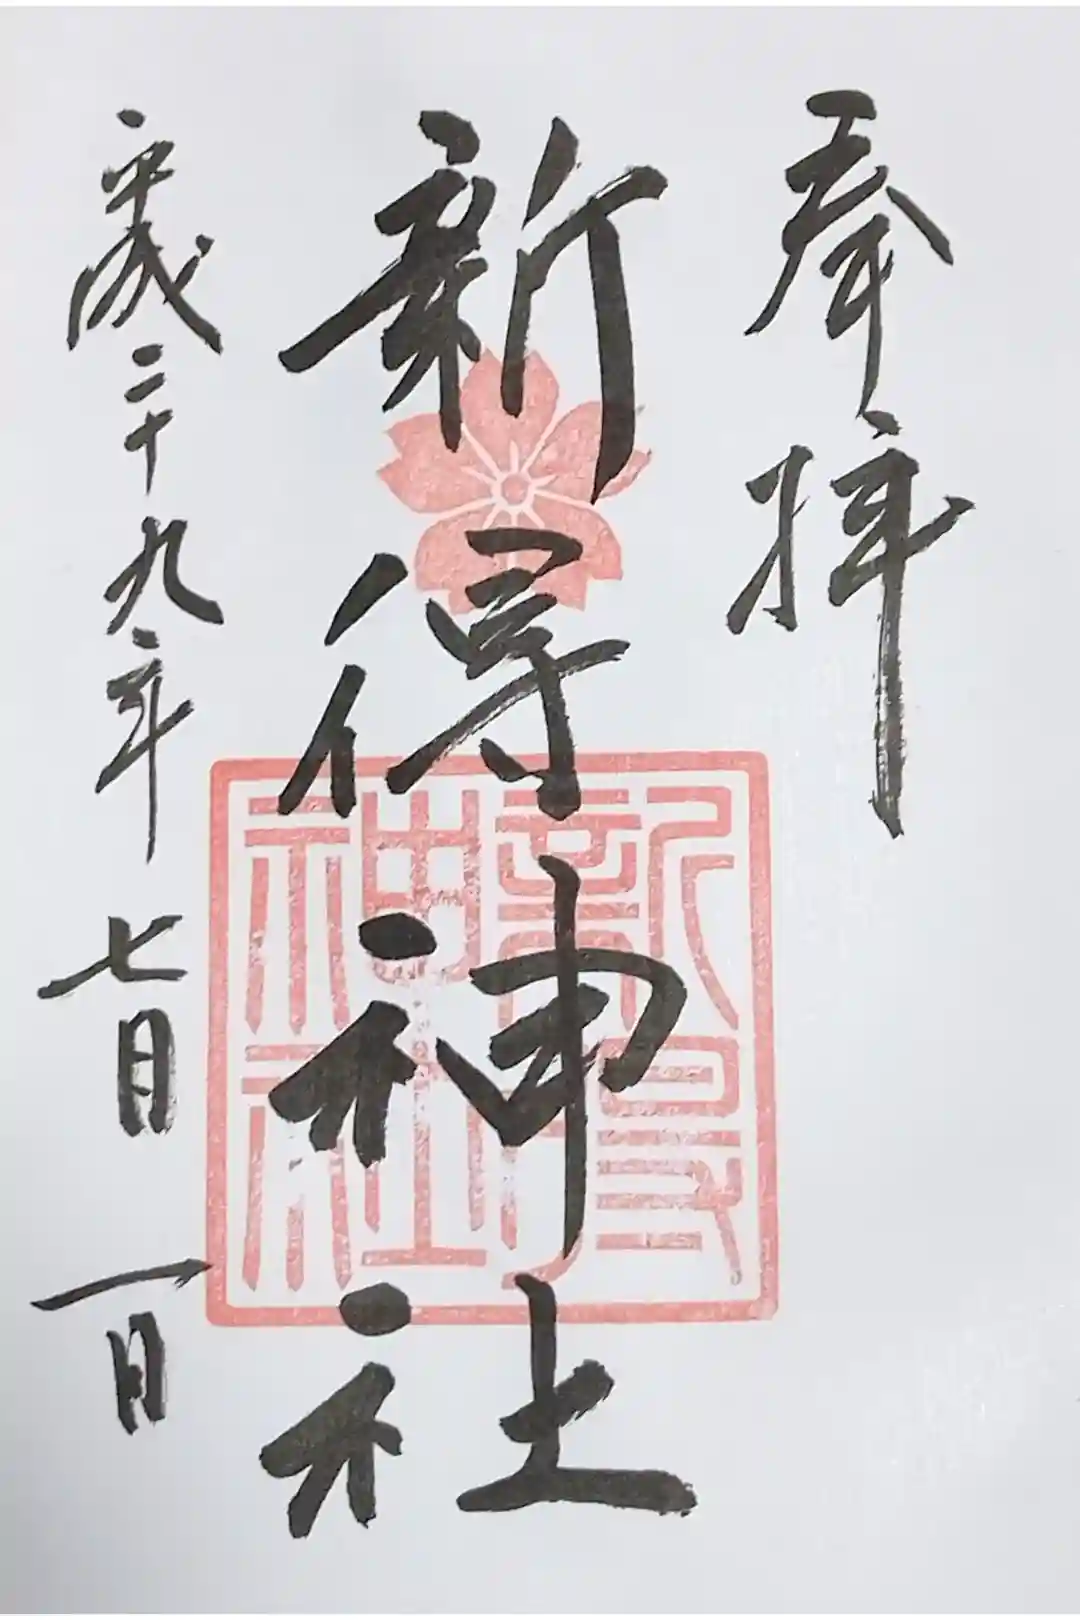 奉拝
新得神社
新得神社
平成二十九年七月一日